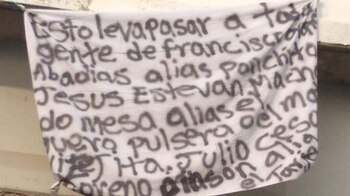 Esto le va pasar a toda
gente de francisco
Abadias alias panchito
Jesus Estevan Mach
do mesa alias el
guero pulsera del mo
Julio Ceso
oreno alias el